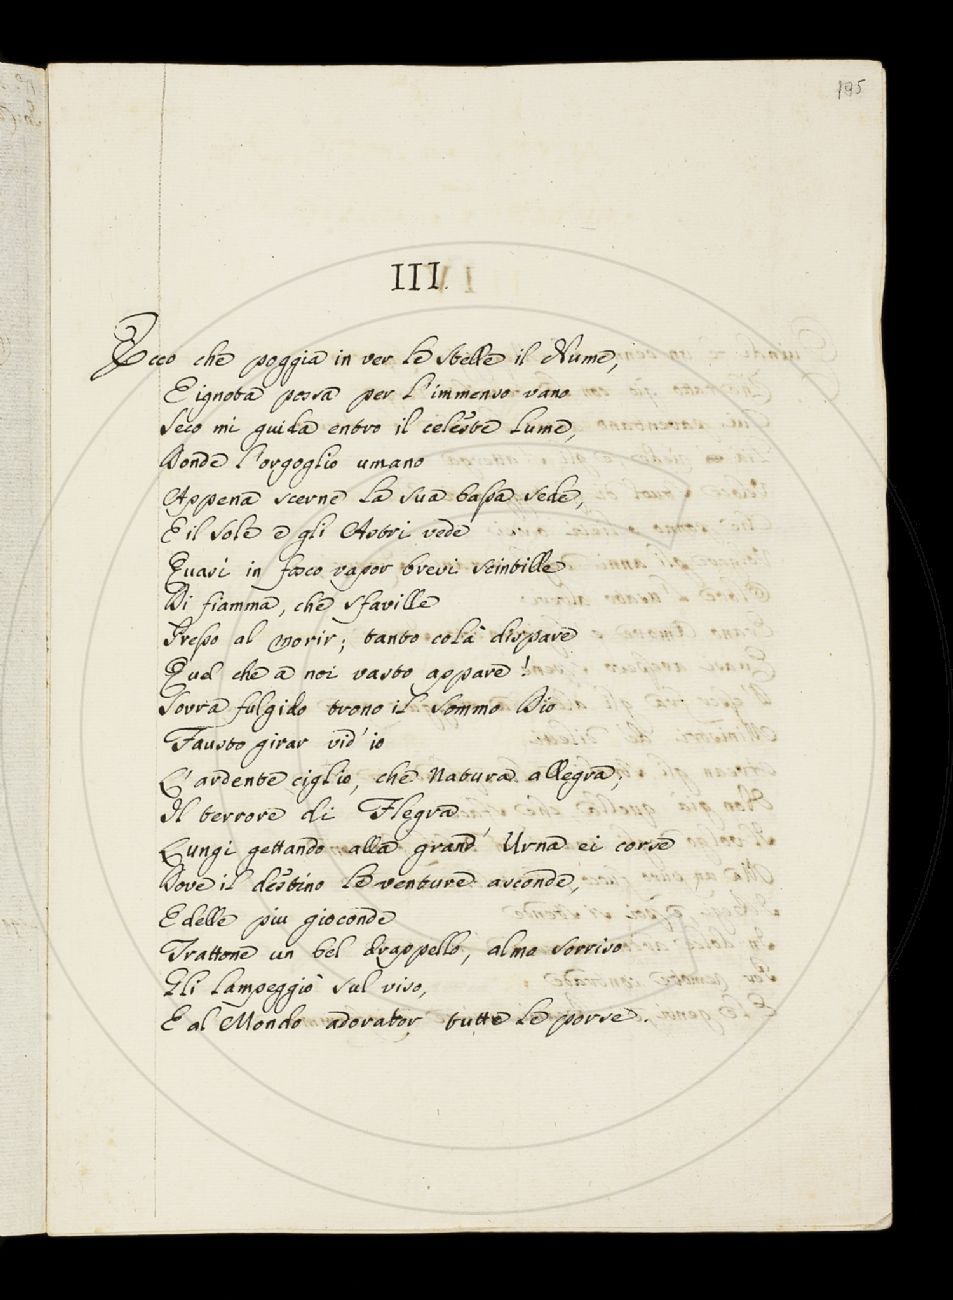 195
III.
Ecco che poggia in ver le stelle il Nume,
E ignota possa per l'immenso vano
Seco mi guida entro il celeste lume,
Donde l'orgoglio umano
Appena scerne la sua bassa sede,
E il sole e gli Astri vede
Quasi in fosco vapor brevi scintille
Di fiamma, che sfaville
Presso al morir; tanto colà dispare
Quel che a noi vasto appare!
Sovra fulgido trono il Sommo Dio
Fausto girar vid' io
L'ardente ciglio, che Natura allegra,
Il terrore di Flegra
Lungi gettando alla grand' Urna ei corse
Dove il destino le venture asconde,
E delle più gioconde
Trattone un bel drappello, almo sorriso
Gli lampeggiò sul viso,
E al Mondo adorator tutte le porse.